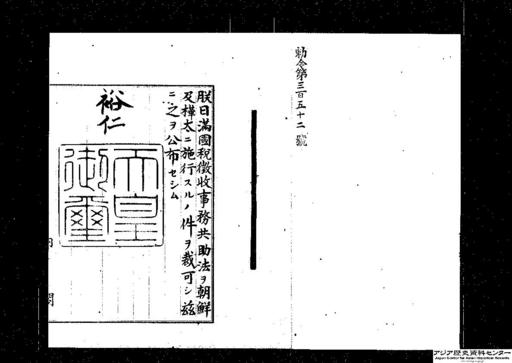 勅令第三百五十二號
朕日滿國稅徵收事務共助法ヲ朝鮮
及樺太ニ施行スルノ件ヲ裁可シ茲
ニ之ヲ公布セシム
裕仁
天皇
御璽
閣
アジア歴史資料センター
Japan Center for Asian Historical Records